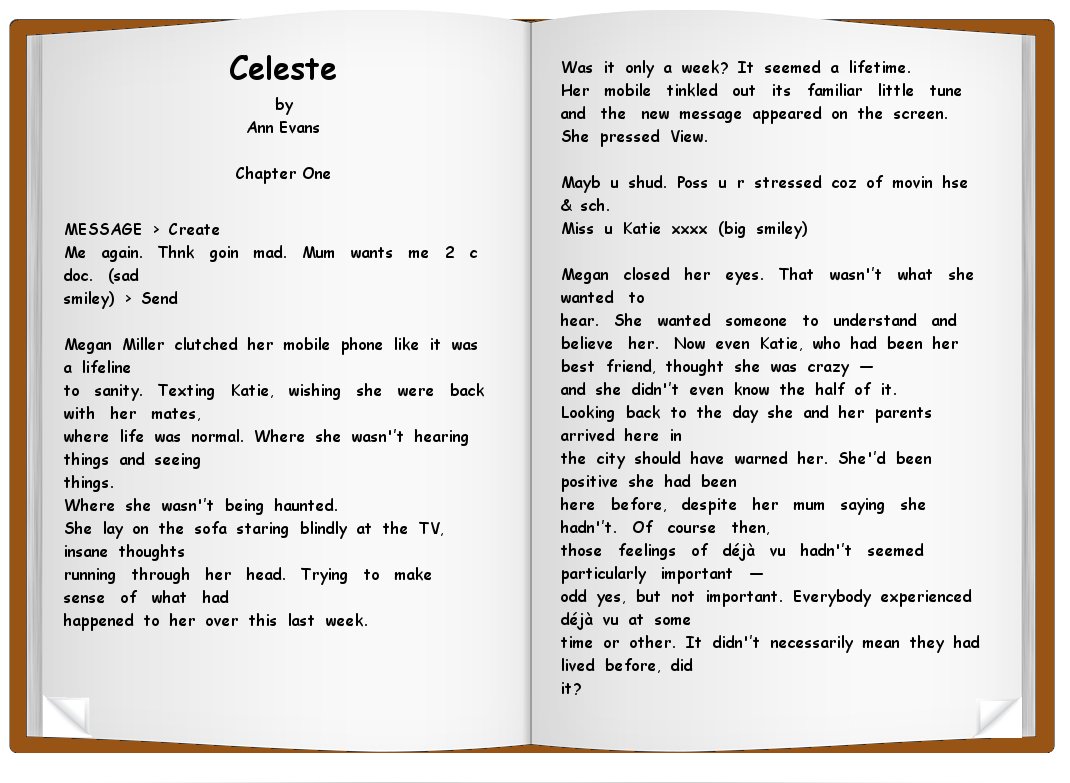 Celeste
by
Ann Evans
Chapter One
MESSAGE > Create
Me again. Thnk goin mad. Mum wants me 2 c
doc. (sad
smiley) > Send
Megan Miller clutched her mobile phone like it was
a lifeline
to sanity. Texting Katie, wishing she were back
with her mates,
where life was normal. Where she wasn'’t hearing
things and seeing
things.
Where she wasn'’t being haunted.
She lay on the sofa staring blindly at the TV,
insane thoughts
running through her head. Trying to make
sense of what had
happened to her over this last week.
Was it only a week? It seemed a lifetime.
Her mobile tinkled out its familiar little tune
and the new message appeared on the screen.
She pressed View.
Mayb u shud. Poss u r stressed coz of movin hse
& sch.
Miss u Katie xxxx (big smiley)
Megan closed her eyes. That wasn'’t what she
wanted to
hear. She wanted someone to understand and
believe her. Now even Katie, who had been her
best friend, thought she was crazy —
and she didn'’t even know the half of it.
Looking back to the day she and her parents
arrived here in
the city should have warned her. She'’d been
positive she had been
here before, despite her mum saying she
hadn'’t. Of course then,
those feelings of déjà vu hadn'’t seemed
particularly important —
odd yes, but not important. Everybody experienced
déjà vu at some
time or other. It didn'’t necessarily mean they had
lived before, did
it?